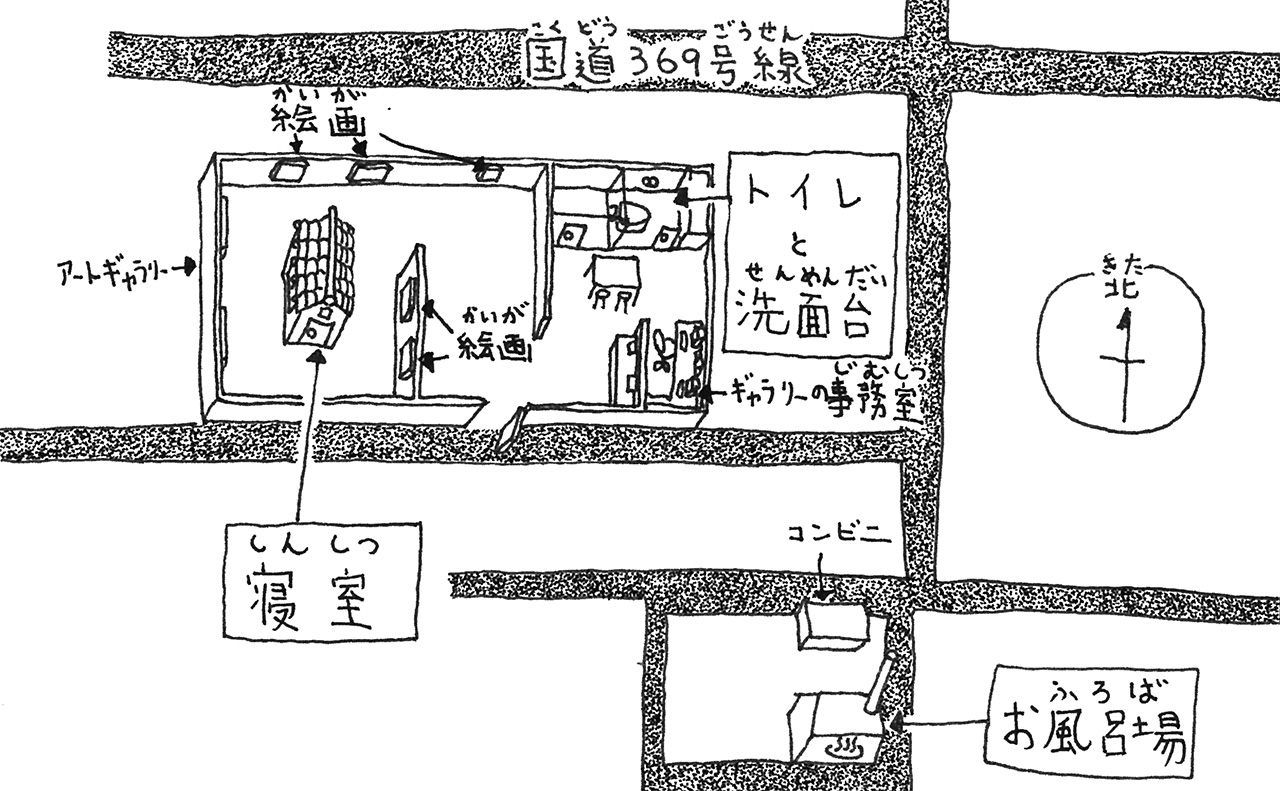 こくどう ごうせん
国道369号線
かいが
絵画
アートギャラリー
トイレ
と
せんめんだい
洗面台
きた
北
かいが
絵画
じむしつ
ギャラリーの事務室
しんしつ
寝室
コンビニ
ふろば
お風呂場